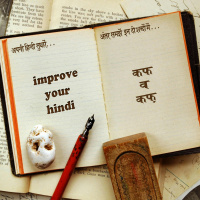 अपनी हिन्दी सुधारें...
improve
your
hindi
अंतर समझें इन शब्दों में...
कफ
व
कफ़